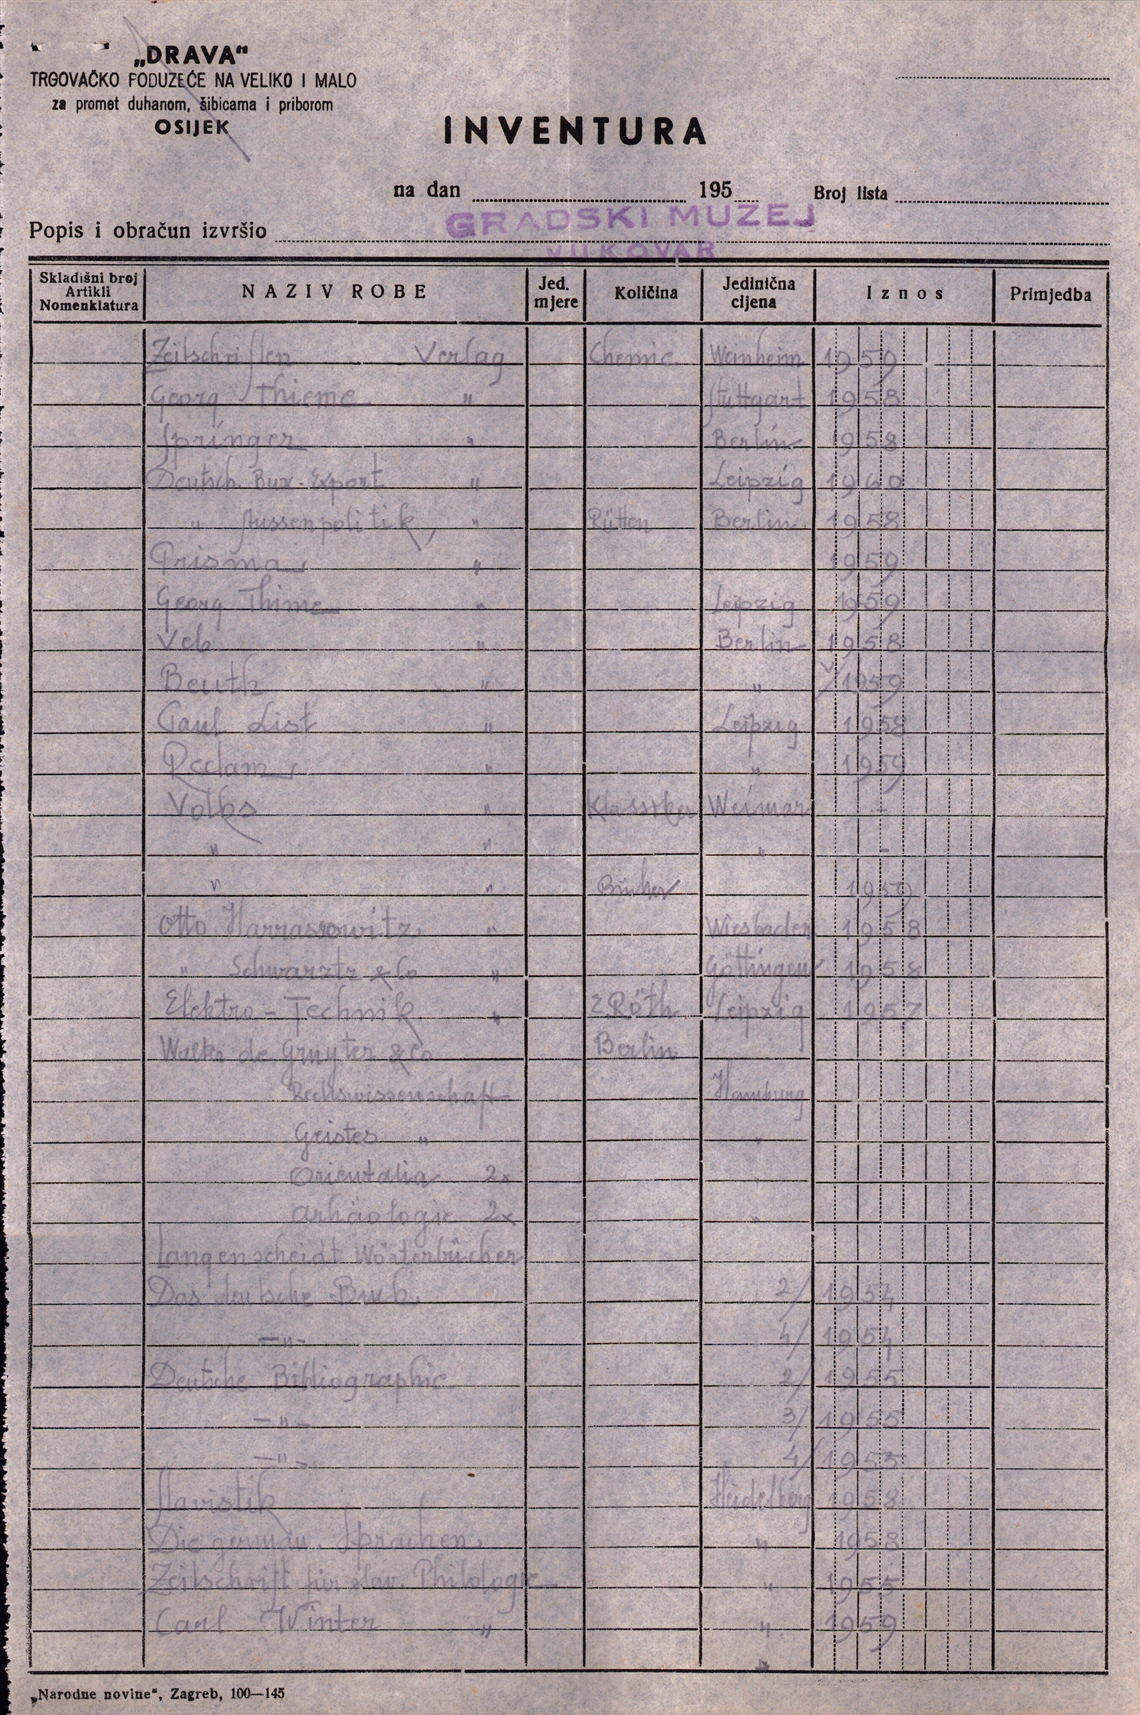 „DRAVA“
TRGOVAČKO PODUZEĆE NA VELIKO I MALO
za promet duhanom, šibicama i priborom
OSIJEK
INVENTURA
na dan 195 Broj lista
GRADSKI MUZEJ
VUKOVAR
Popis i obračun izvršio
Skladišni broj Artikli Nomenklatura NAZIV ROBE Jed. mjere Količina Jedinična cijena Iznos Primjedba
Zeitschriften Verlag Chemie Weinheim 1959
Georg Thieme " Stuttgart 1958
Springer " Berlin 1958
Deutsch. Bux-Export " Leipzig 1960
" Aussenpolitik, " Rütten Berlin 1958
Prisma " 1959
Georg Thime " Leipzig 1959
Veb " Berlin 1958
Beuth " " 1959
Paul List " Leipzig 1958
Reclam " " 1959
Volks " Klassiker Weimar -
" " " -
" " Bücher 1959
Otto Harrassowitz " Wiesbaden 1958
" Schwartz & Co " Göttingen 1958
Elektro-Technik " Röth Leipzig 1957
de Gruyter & Co Berlin
Rechtswissenschaft Hamburg
Geistes " "
Orientalia 2x "
Arhäologie 2x "
Langenscheidt Wörterbücher
Das deutsche Buch 2/ 1954
—"— 4/ 1954
Deutsche Bibliographie 2/ 1955
—"— 3/ 1955
—"— 4/ 1955
Slavistik Heidelberg 1958
Die german. Sprachen " 1958
Zeitschrift für slav. Philologie " 1955
Carl Winter " " 1959
"
„Narodne novine“, Zagreb, 100—145